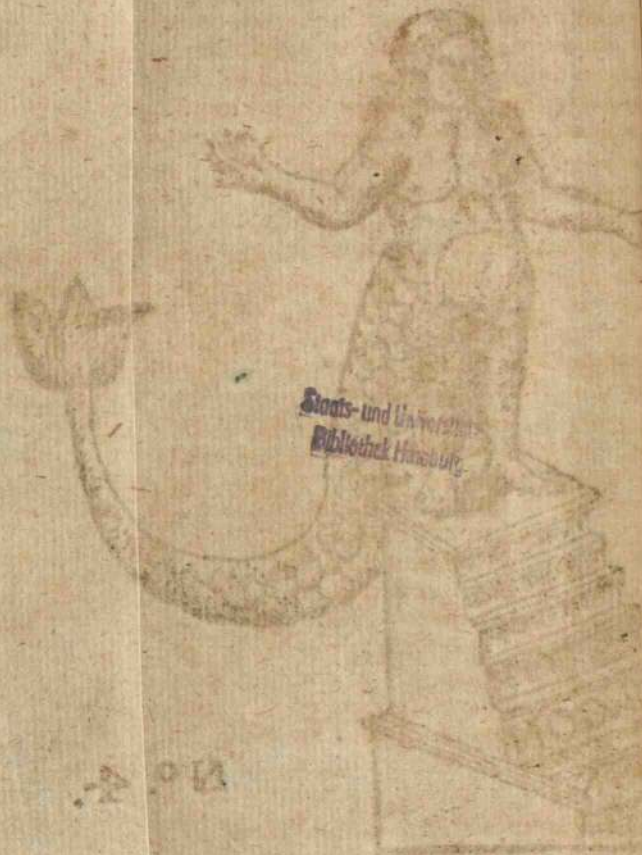 Staats- und Universitäts-
Bibliothek Hamburg